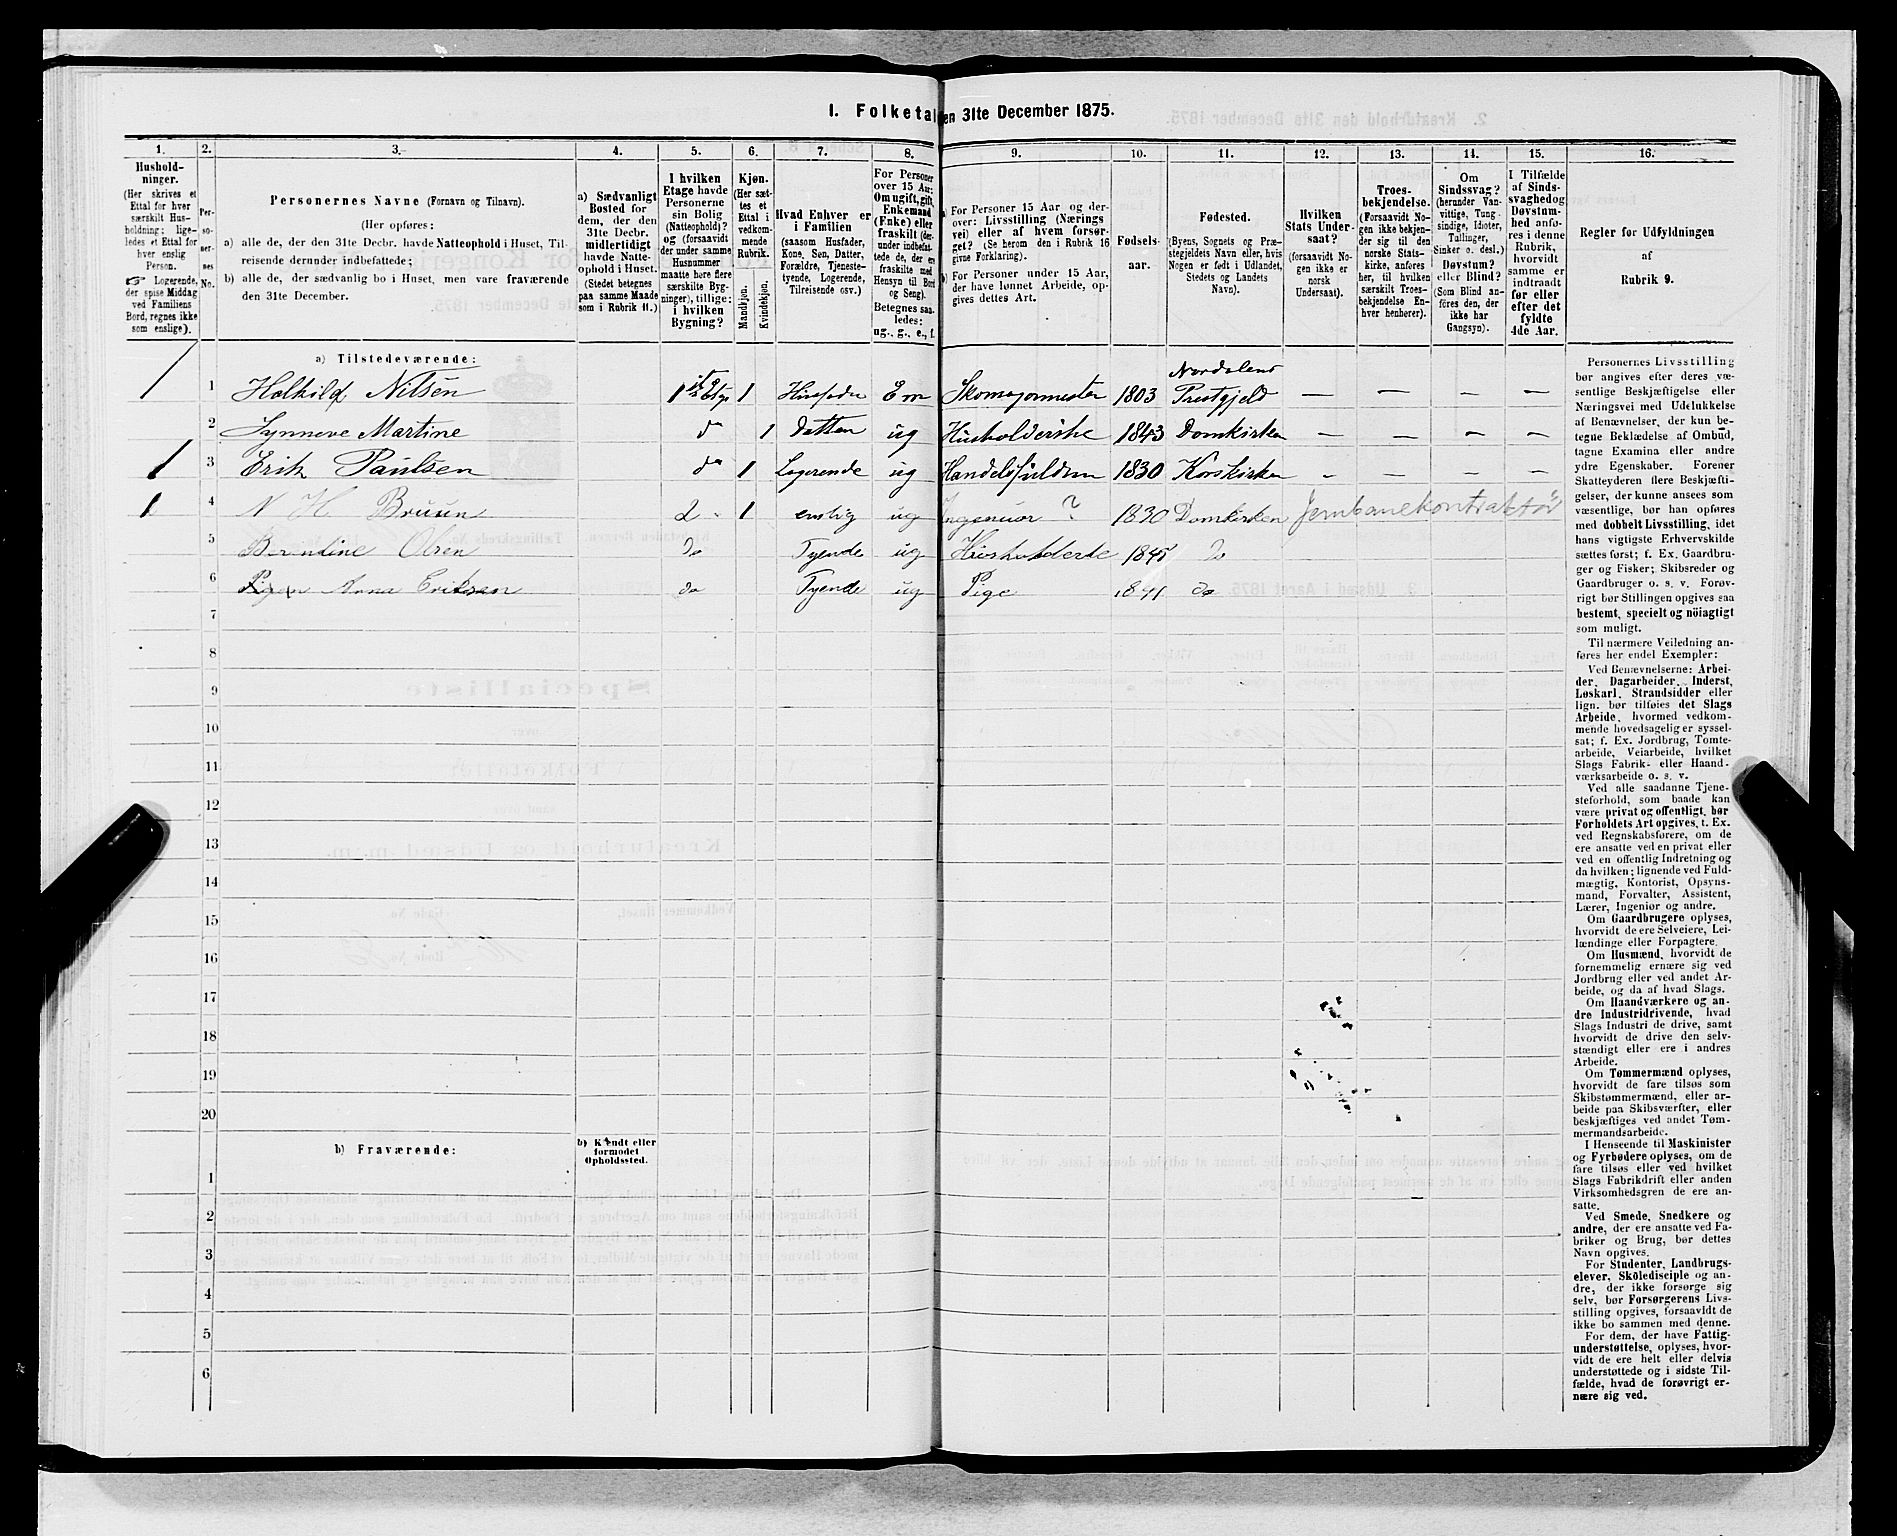 I. Folketal den 31te December 1875.
1. 2. 3. 4. 5. 6. 7. 8. 9. 10. 11. 12. 13. 14. 15. 16.
Hushold-
ninger.
(Her skrives et
Ettal for hver
særskilt Hus-
holdning; lige-
ledes et Ettal for
hver enslig
Person.
☞ Logerende,
der spise Middag
ved Familiens
Bord, regnes ikke
som enslige).
Per-
so-
ner-
nes
No.
Personernes Navne (Fornavn og Tilnavn).
(Her opføres:
a) alle de, der den 31te Decbr. havde Natteophold i Huset, Til-
reisende derunder indbefattede;
b) alle de, der sædvanlig bo i Huset, men vare fraværende
den 31te December.
a) Sædvanligt
Bosted for
dem, der den
31te Decbr.
midlertidigt
havde Natte-
ophold i Huset.
(Stedet betegnes
paa samme Maade
som i Rubrik 11.)
I hvilken
Etage havde
Personerne
sin Bolig
(Natteophold)?
og (forsaavidt
der under samme
Husnummer
maatte høre flere
særskilte Byg-
ninger), tillige:
i hvilken
Bygning?
Kjøn.
(Her sæt-
tes et
Ettal i
vedkom-
mende
Rubrik.
Mandkjøn.
Kvindekjøn.
Hvad Enhver er
i Familien
(saasom Husfader,
Kone, Søn, Datter,
Forældre, Tjeneste-
tyende, Logerende,
Tilreisende osv.)
For Personer
over 15 Aar:
Om ugift, gift,
Enkemand
(Enke) eller
fraskilt (der-
under indbefat-
tede de, der ere
fraskilte med
Hensyn til Bord
og Seng).
Betegnes saa-
ledes:
ug., g., e., f.
a) For Personer 15 Aar og der-
over: Livsstilling (Nærings
vei) eller af hvem forsør-
get? (Se herom den i Rubrik 16
givne Forklaring).
b) For Personer under 15 Aar,
der have lønnet Arbeide, op-
gives dettes Art.
Fødsels-
aar.
Fødested.
(Byens, Sognets og Præ-
stegjeldets Navn eller, hvis
Nogen er født i Udlandet,
Stedets og Landets
Navn).
Hvilken
Stats Under-
saat?
(forsaavidt No-
gen ikke er
norsk
Undersaat).
Troes-
bekjendelse.
(Forsaavidt No-
gen ikke bekjen-
der sig til den
norske Stats-
kirke, anføres
her, til hvilken
særskilt Troes-
bekjendelse En-
hver henhører).
Om
Sindssvag?
(herunder Van-
vittige, Tung-
sindige, Idioter,
Tullinger,
Sinker o. desl.)
Døvstum?
eller Blind?
(Som Blind an-
føres den, der
ikke har
Gangsyn).
I Tilfælde
af Sinds-
svaghed og
Døvstum-
hed anfø-
res i denne
Rubrik,
hvorvidt
samme er
indtraadt
før eller
efter det
fyldte
4de Aar.
Regler for Udfyldningen
af
Rubrik 9.
a) Tilstedeværende:
1 1 Halkild Nilsen 1 ste Etge 1 Husfader Em Skomagermester 1803 Nordalens Prestgjeld — — — —
2 Synneve Martine do 1 Datter ug Husholderske 1843 Domkirken — — — —
1 3 Erik Paulsen do 1 Logerende ug Handelsfuldm 1830 Korskirken — — — —
1 4 N H Bruun 2 1 enslig ug Ingeniør ? 1830 Domkirken Jernbanekontraktør
5 Berntine Olsen Do Tyende ug Husholderske 1845 Do
6 Pigen Anna Eriksen do Tyende ug Pige 1841 do
7
8
9
10
11
12
13
14
15
16
17
18
19
20
b) Fraværende:
b) Kjendt eller
formodet
Opholdssted.
1
2
3
4
5
6
Personernes Livsstilling
bør angives efter deres væ-
sentlige Beskjæftigelse eller
Næringsvei med Udelukkelse
af Benævnelser, der kun be-
tegne Beklædelse af Ombud,
tagne Examina eller andre
ydre Egenskaber. Forener
Skatteyderen flere Beskjæfti-
gelser, der kunne ansees som
væsentlige, bør han opføres
med dobbelt Livsstilling, idet
hans vigtigste Erhvervskilde
sættes først; f. Ex. Gaardbru-
ger og Fisker; Skibsreder og
Gaardbruger o. s. v. Forøv-
rigt bør Stillingen opgives saa
bestemt, specielt og nöiagtigt
som muligt.
Til nærmere Veiledning an-
føres her endel Exempler:
Ved Benævnelserne: Arbei-
der, Dagarbeider, Inderst,
Løskarl, Strandsidder eller
lign. bør tilføies det Slags
Arbeide, hvormed vedkom-
mende hovedsagelig er syssel-
sat; f. Ex. Jordbrug, Tomte-
arbeide, Veiarbeide, hvilket
Slags Fabrik- eller Haand-
værksarbeide o. s. v.
Ved alle saadanne Tjene-
steforhold, som baade kan
være privat og offentligt, bør
Forholdets Art opgives, t. Ex.
ved Regnskabsførere, om de
ere ansatte ved en privat eller
ved en offentlig Indretning og
da hvilken; lignende ved Fuld-
mægtig, Kontorist, Opsyns-
mand, Forvalter, Assistent,
Lærer, Ingeniør og andre.
Om Gaardbrugere oplyses,
hvorvidt de ere Selveiere, Lei-
lændinge eller Forpagtere.
Om Husmænd, hvorvidt de
fornemmelig ernære sig ved
Jordbrug eller ved andet Ar-
beide, og da af hvad Slags.
Om Haandværkere og an-
dre Industridrivende, hvad
Slags Industri de drive, samt
hvorvidt de drive den selv-
stændigt eller ere i andres
Arbeide.
Om Tømmermænd oplyses,
hvorvidt de fare tilsøs som
Skibstømmermænd, eller ar-
beide paa Skibsværfter, eller
beskjæftiges ved andet Tøm-
mermandsarbeide.
I Henseende til Maskinister
og Fyrbødere oplyses, om de
fare tilsøs eller ved hvilket
Slags Fabrikdrift eller anden
Virksomhedsgren de ere an-
satte.
Ved Smede, Snedkere og
andre, der ere ansatte ved Fa-
briker og Brug, bør dettes
Navn opgives.
For Studenter, Landbrugs-
elever, Skoledisciple og an-
dre, der ikke forsørge sig
selv, bør Forsørgerens Livs-
stilling opgives, forsaavidt de
ikke bo sammen med denne.
For dem, der have Fattig-
understøttelse, oplyses, hvor-
vidt de ere helt eller delvis
understøttede og i sidste Til-
fælde, hvad de forøvrigt er-
nære sig ved.